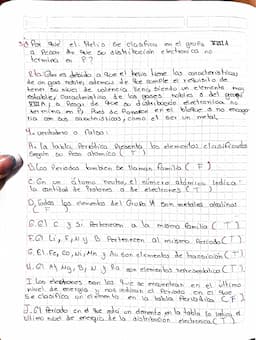 3) Por que el Helio se clasifica en el grupo VIIIA
a Pesar de que su distribución electronica no
termina en P?
R/a: Esto es debido a que el helio tiene las características
de un gas noble, ademas de que cumple el requisito de
tener su nivel de valencia lleno siendo un elemento muy
estable, Característica de los gases nobles o del grupo
VIIIA; a Pesar de que su distribución electronica no
termina en P. Pues de Ponerse en el bloque s no encaja-
ria con sus características, como el ser un metal.
4. verdadero o falso:
A. la tabla Periódica Presenta los elementos clasificados
según su Peso atómico ( T ).
B. Los Periodos tambien se llaman familia ( F )
C. En un átomo neutro, el número atómico indica
la cantidad de Protones o de electrones ( T )
D. Todos los elementos del Grupo IA son metales alcalinos
( F )
E. El C y Si Pertenecen a la misma familia ( T ).
F. El Li, F, N y B Pertenecen al mismo Periodo ( T ).
G. El Fe, Co, Ni, Mn y Au son elementos de transición ( T )
H. El Al, Mg, Br, N y Ra son elementos representativos ( T ).
I. Los electrones son los que se encuentran en el último
nivel de energia y nos indican el Periodo en el que
se clasifica un elemento en la tabla Periódica ( F ).
J. El Periodo en el que está un elemento en la tabla lo indica el
último nivel de energía de la distribución electronica ( T ).